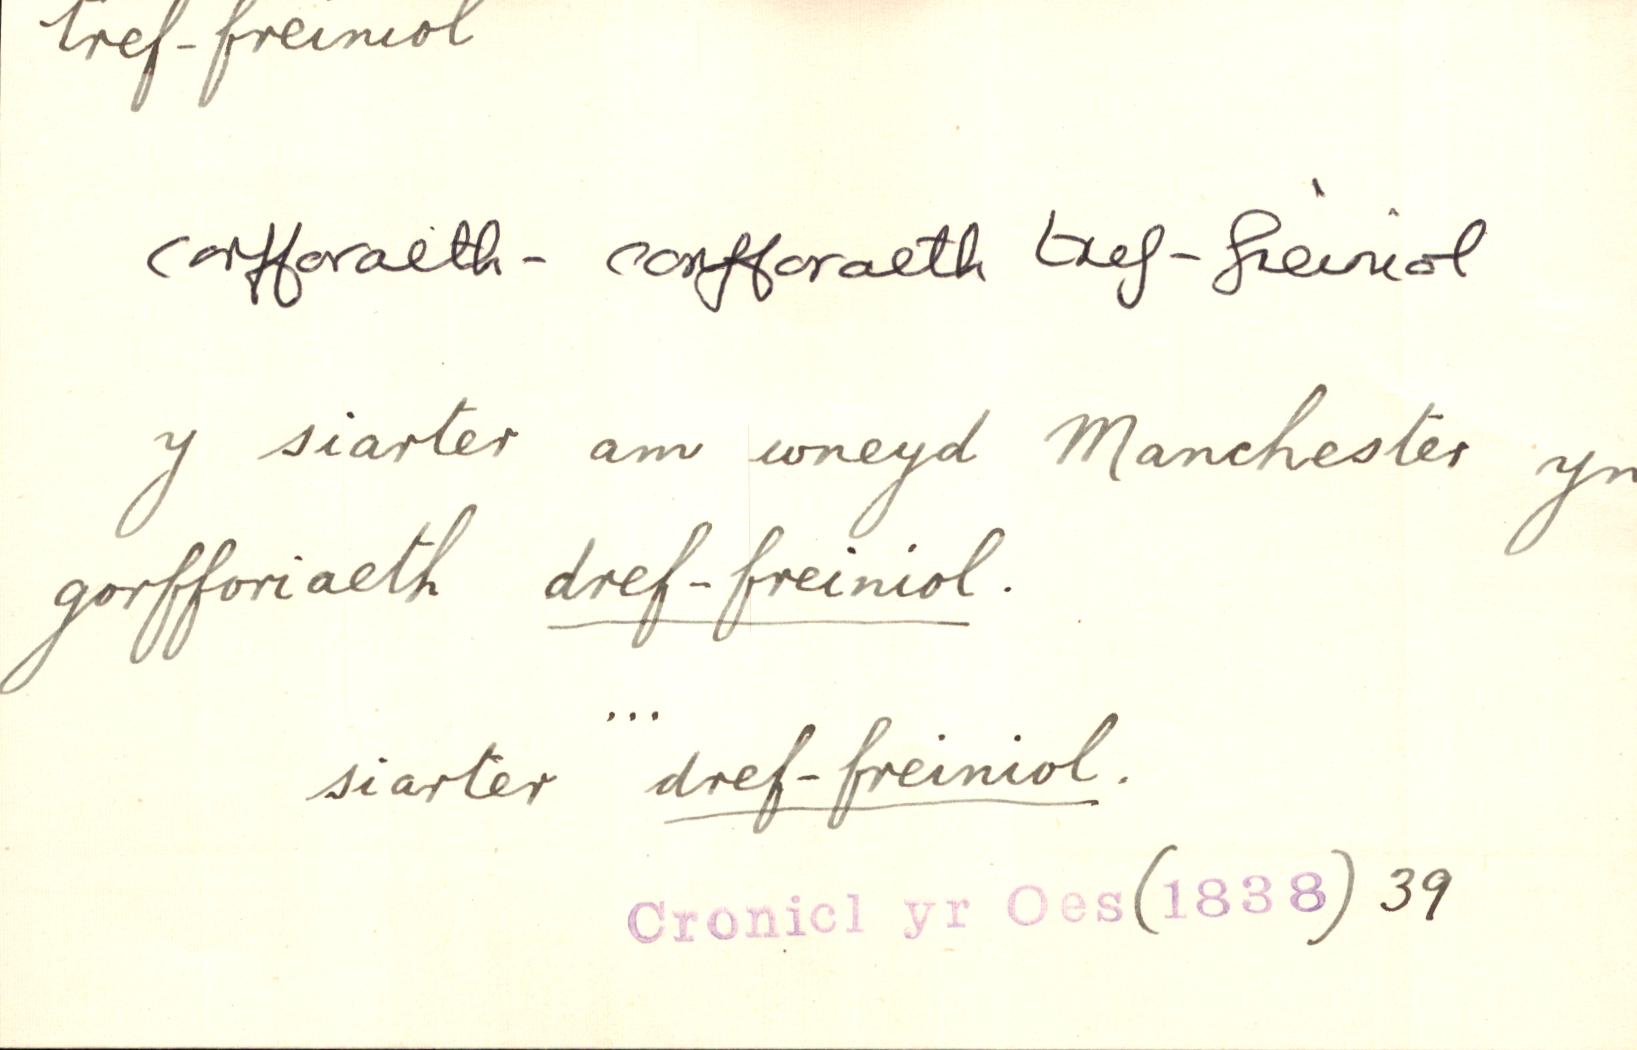 tref-freiniol
corfforaeth - corfforaeth tref-freiniol
y siarter am wneyd Manchester yn
gorfforiaeth dref-freiniol.
...
siarter dref-freiniol.
Cronicl yr Oes (1838) 39